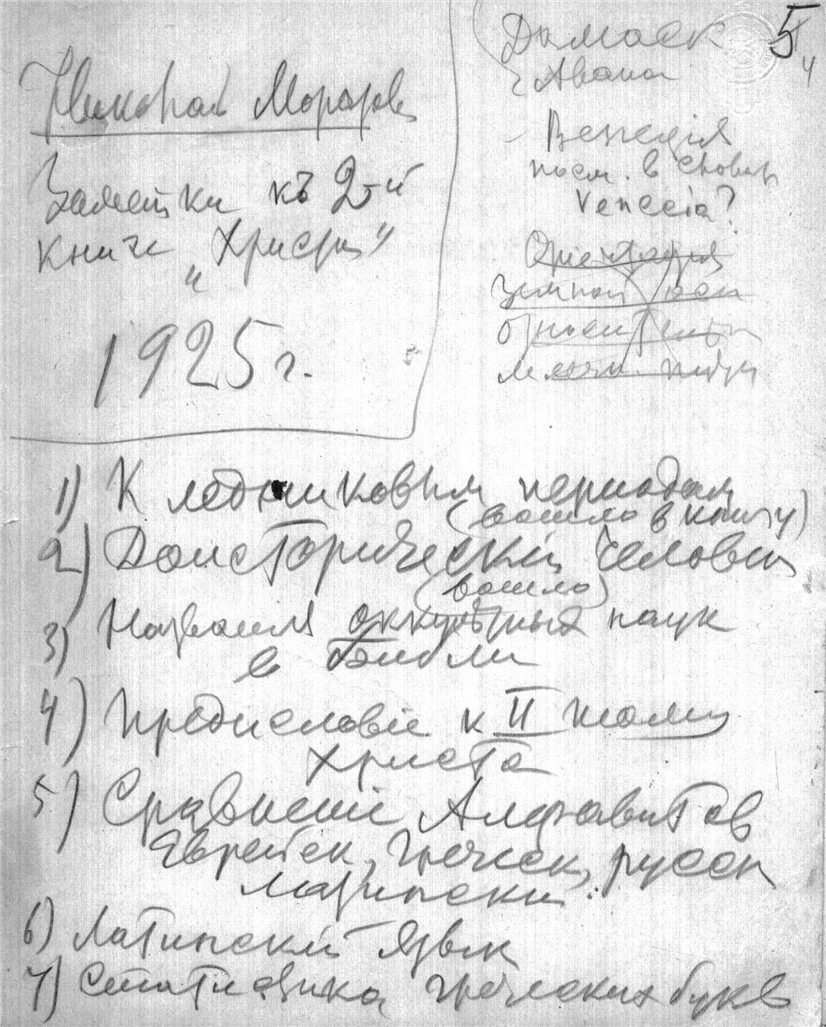 Николай Морозов
Заметки къ 2-й
книге „Христа"
1925 г.
Дамаск
Авана
Венеція
посм. в словарь
Venecia?
Ориентация
земной оси
относительно
5
4
1) К ледниковым периодам
(вошло в книгу)
2) Доисторический человек
(вошло)
3) Названия оккультных наук
в Библии
4) Предисловіе к II тому
Христа
5) Сравненіе Алфавитов
Еврейск, Греческ, русск
Латински.
6) Латинский язык
7) Статистика греческих букв